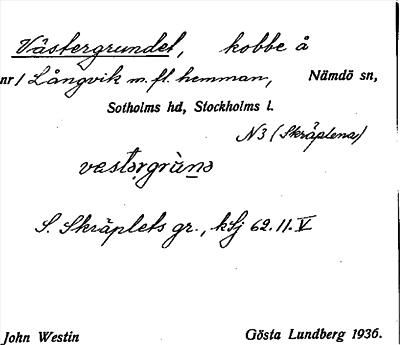 Västergrundet, kobbe å
nr 1 Långvik m. fl. hemman, Nämdö sn,
Sotholms hd, Stockholms l.
N3 (Skräplena)
västərgrùnə
S. Skräplets gr., kSj 62.11.V
John Westin Gösta Lundberg 1936.